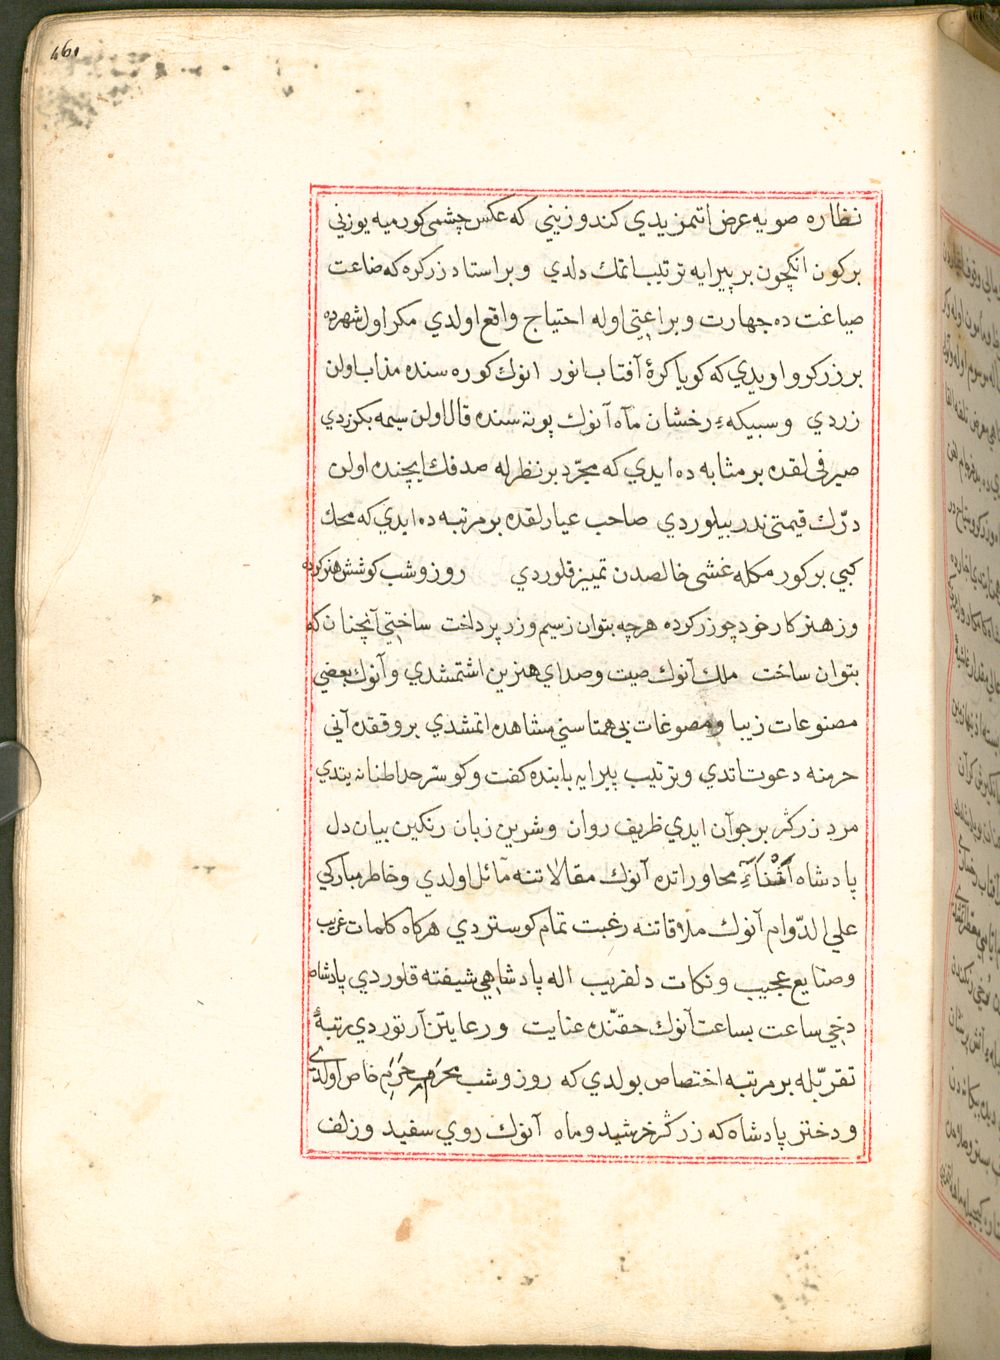 461
نظاره صویه عرض اتمزیدي كندوزیني كه عكس چشمی كورمیه یوزني
بركون انكچون بر پیرایه ترتیب اتمك دلدي وبر استاد زركره كه ضاعت
صیاغت ده جهارت وبراعتی اوله احتیاج واقع اولدي مكر اول شهرده
بر زركر وار ویدي كه كویا كرهٔ آفتاب انور انوك كوره سنده مذاب اولن
زردي وسبیكهء رخشان ماه آنوك پوته سنده قال اولن سیمه بكزردي
صیرفی لقده بر مثابه ده ایدي كه مجرّد بر نظرله صدفك ایچنده اولن
درّك قیمتی ندر بیلوردي صاحب عیارلقده بر مرتبه ده ایدي كه محك
كبي بركورمكله غشی خالصدن تمییز قلوردي روز وشب كوشش هنر كرده
وز هنر كار خود چو زر كرده هرچه بتوان ز سیم وزر پرداخت ساختي آنچنان كه
بتوان ساخت ملك آنوك صیت وصداي هنرین اشتمشدي وآنوك بعضي
مصنوعات زیبا ومصوغات بی همتاسني مشاهده اتمشدي بر وقده آني
حرمنه دعوت اتدي وترتیب پیرایه بابنده كفت وكو سرّ حد اطنابه یتدي
مرد زركر بر جوآن ایدي ظریف روان وشرین زبان رنكین بیان دل
پادشاه آشْناَء محاوراتده آنوك مقالاتنه مآئل اولدي وخاطر مباركي
علي الدّوام آنوك ملاقاتنه رغبت تمام كوستردي هركاه كلمات غریب
وصنایع عجیب ونكات دلفریب اله پادشاهي شیفته قلوردي پادشاه
دخي ساعت بساعت آنوك حقنده عنایت ورعایتن آرتوردي رتبهٔ
تقربّله بر مرتبه اختصاص بولدي كه روز وشب محرم حرم خاص اولدي
ودختر پادشاه كه زركر خرشید وماه آنوك روي سفید وزلف